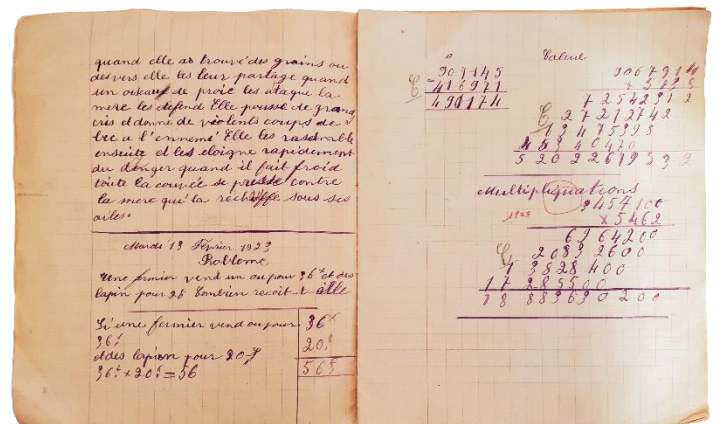 quand elle as trouvé des grains ou
des vers elle les leur partage quand
un oiseau de proie les ataque la
mère les défend Elle pousse de grands
cris et donne de violents coups de
bec a l'ennemé Elle les rasemble
ensuite et les eloigne rapidement
du danger quand il fait froid
toute la couvée se presse contre
la mere qui la rechauffe sous ses
ailes.
Mardi 13 Février 1923
Probleme
Une fermier vend un ou pour 36f et des
lapin pour 20 Combien recoit-t-elle
Si une fermier vend ou pour 36f
36f 20f
et des lapin pour 20f 56f
36f x 20f = 56
Calcul
907145
-416971
490174
9067914
7254231 2
27212742
45340470
Multipliquations
1923
3457100
x5462
6964200
2083 2600
1 3828 400
17 285500
18 883690 200